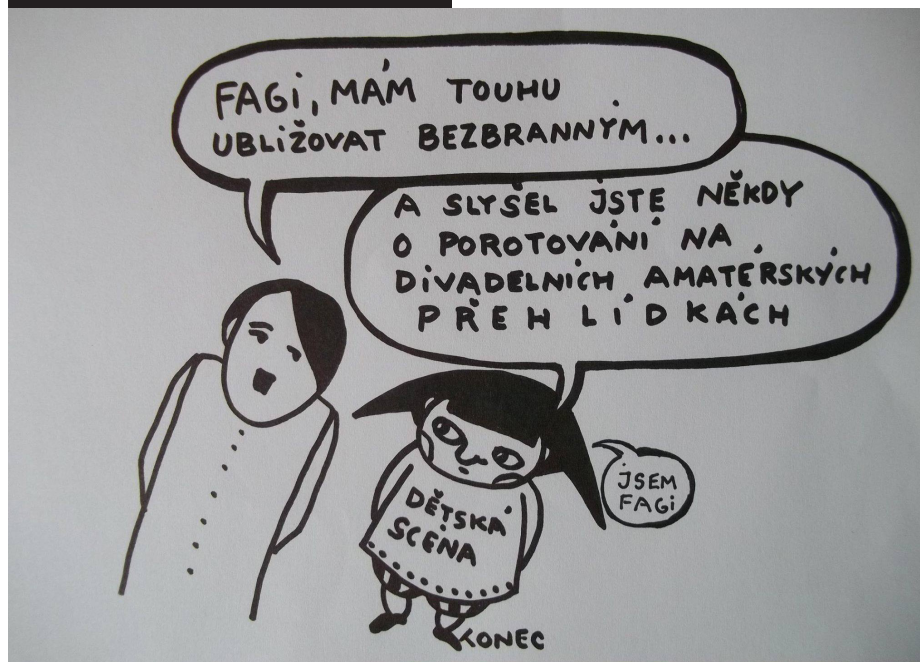 FAGi, MÁM TOUHU
UBLIŽOVAT BEZBRANNÝM...
A SLYŠEL JSTE NĚKDY
O POROTOVÁNÍ NA
DIVADELNÍCH AMATÉRSKÝCH
PŘEHLÍDKÁCH
JSEM
FAGi
DĚTSKÁ
SCÉNA
KONEC